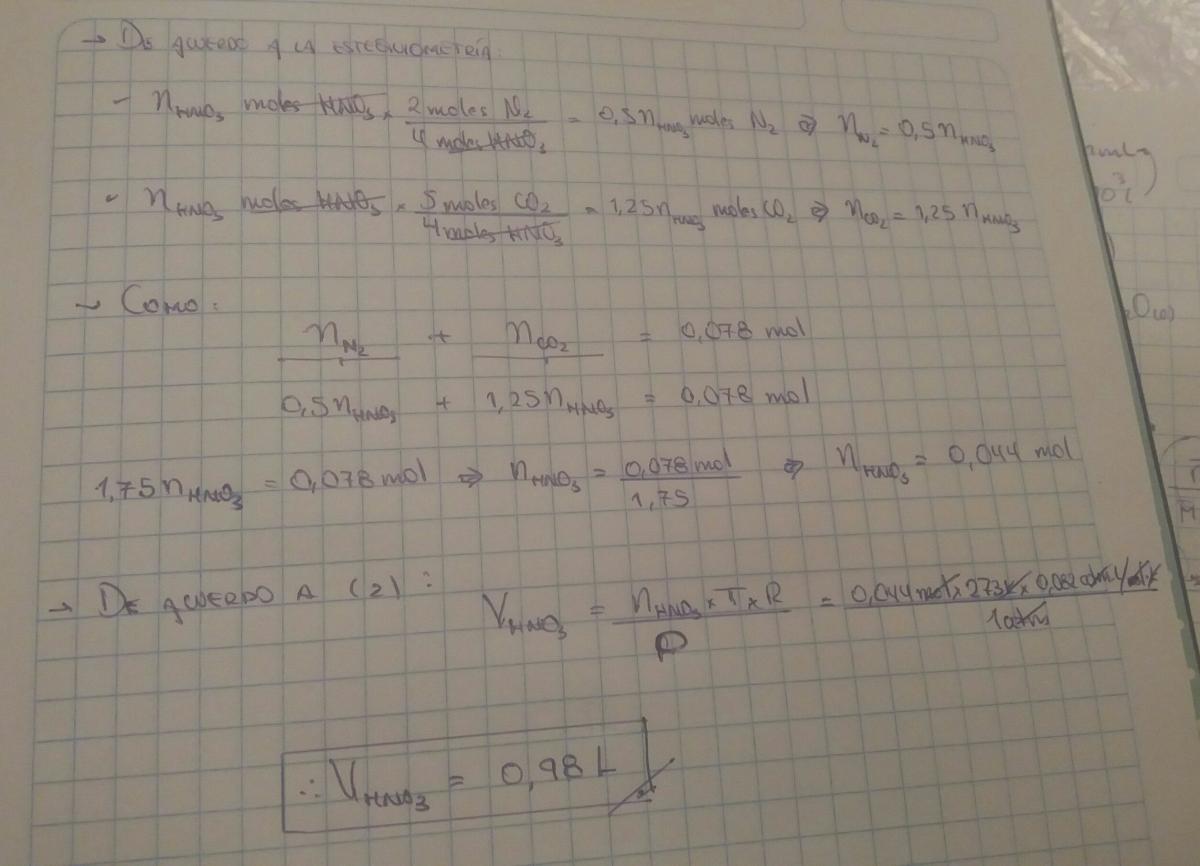 → DE ACUERDO A LA ESTEQUIOMETRÍA:
- nHNO3 moles HNO3 × 2 moles N2 / 4 moles HNO3 = 0,5nHNO3 moles N2 ⇒ nN2 = 0,5nHNO3
- nHNO3 moles HNO3 × 5 moles CO2 / 4 moles HNO3 = 1,25nHNO3 moles CO2 ⇒ nCO2 = 1,25 nHNO3
~ COMO:
nN2 + nCO2 = 0,078 mol
0,5nHNO3 + 1,25nHNO3 = 0,078 mol
1,75nHNO3 = 0,078 mol ⇒ nHNO3 = 0,078 mol / 1,75 ⇒ nHNO3 = 0,044 mol
→ DE ACUERDO A (2): VHNO3 = nHNO3 × T × R / P = 0,044 mol × 273 K × 0,082 atm.L/mol.K / 1 atm
∴ VHNO3 = 0,98 L